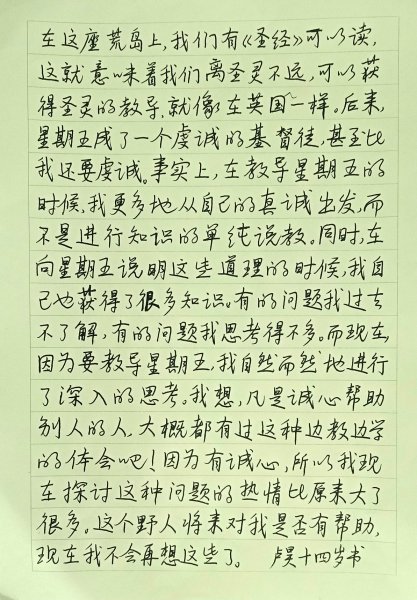 在这座荒岛上,我们有《圣经》可以读,
这就意味着我们离圣灵不远,可以获
得圣灵的教导,就像在英国一样。后来,
星期五成了一个虔诚的基督徒,甚至比
我还要虔诚。事实上,在教导星期五的
时候,我更多地从自己的真诚出发,而
不是进行知识的单纯说教。同时,在
向星期五说明这些道理的时候,我自
己也获得了很多知识。有的问题我过去
不了解,有的问题我思考得不多。而现在,
因为要教导星期五,我自然而然地进行
了深入的思考。我想,凡是诚心帮助
别人的人,大概都有过这种边教边学
的体会吧!因为有诚心,所以我现
在探讨这种问题的热情比原来大了
很多。这个野人将来对我是否有帮助,
现在我不会再想这些了。 卢昊十四岁书